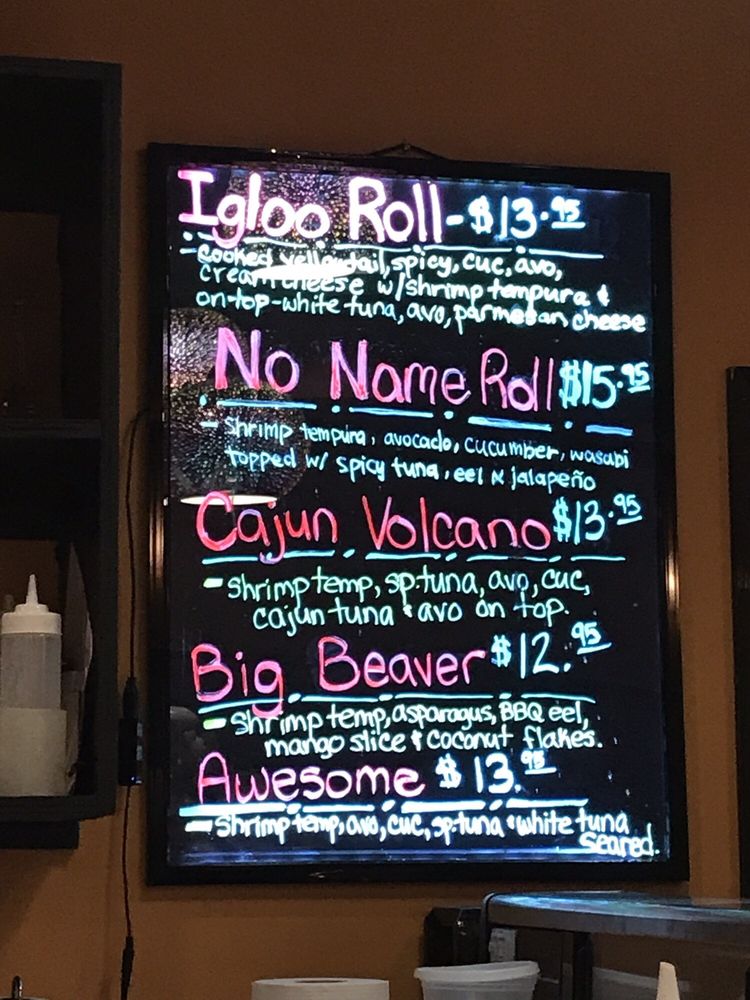 Igloo Roll - $13.95
- cooked yellowtail, spicy, cuc, avo,
cream cheese w/shrimp tempura &
on-top-white tuna, avo, parmesan cheese
No Name Roll $15.95
- shrimp tempura, avocado, cucumber, wasabi
topped w/ spicy tuna, eel & jalapeño
Cajun Volcano $13.95
- Shrimp temp, sp.tuna, avo, cuc,
cajun tuna & avo on top.
Big Beaver $12.95
- Shrimp temp, asparagus, BBQ eel,
mango slice & coconut flakes.
Awesome $13.95
- Shrimp temp, avo, cuc, sp.tuna & white tuna
seared.